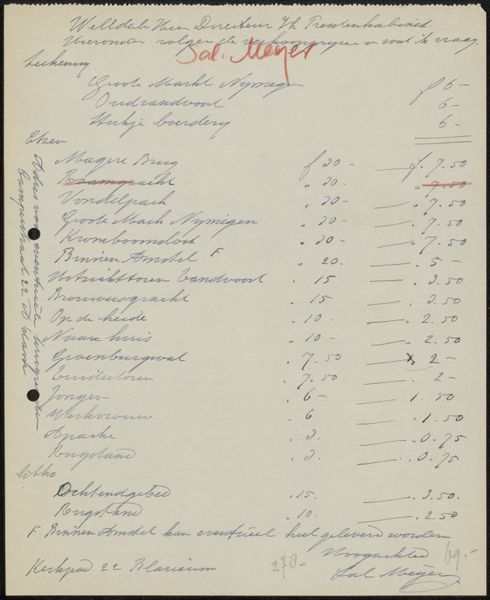 Weledele Heer Directeur Prentenkabinet
Hieronder volgen de
Sal. Meyer
Teekening
Groote Markt Nymegen f 6-
Oud Zandvoort 6-
Stukje boerdery 6-
Etsen
Magere Brug f 20- f. 7.50
Braamgracht . 20- . 7.50
Vondelpark . 20- . 7.50
Groote Mark Nymegen . 20- . 7.50
Kromboomsloot . 20- . 7.50
Binnen Amstel F . 20. . 5-
Zandvoort . 15 . 3.50
Brouwersgracht . 15 . 3.50
Op de heide . 10. . 2.50
Naar huis . 10- . 2.50
Groenburgwal . 7.50 x 2-
Zuidertoren . 7.50 . 2-
Jongen . 6- . 1.50
. 6 . 1.50
Apache . 3. . 0.75
Rustend . 3. . 0.75
Litho
Ochtendgebed . 15. . 3.50
Rustend . 10. . 2.50
F Binnen Amstel kan eventueel geleverd worden
Hoogachtend
69.-
Kerkpad 22 Blaricum 278- Sal Meijer
Adres voor eventueele
22